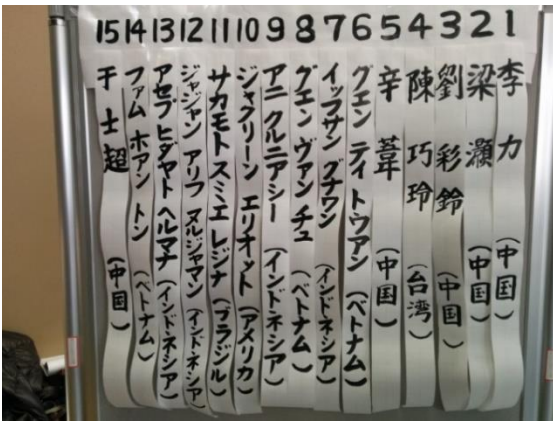 15 14 13 12 11 10 9 8 7 6 5 4 3 2 1
李 力 (中国)
梁 灝 (中国)
劉 彩鈴 (中国)
陳 巧玲 (台湾)
辛 葦 (中国)
グエン ティ トウアン (ベトナム)
イッフサン グナワン (インドネシア)
グエン ヴァン チュ (ベトナム)
アニ クルニアシー (インドネシア)
ジャクリーン エリオット (アメリカ)
サカモト スミエ レジナ (ブラジル)
ジャジャン アリフ ヌルジャマン (インドネシア)
アセプ ヒダヤト ヘルマナ (インドネシア)
ファム ホアン トン (ベトナム)
于 士超 (中国)